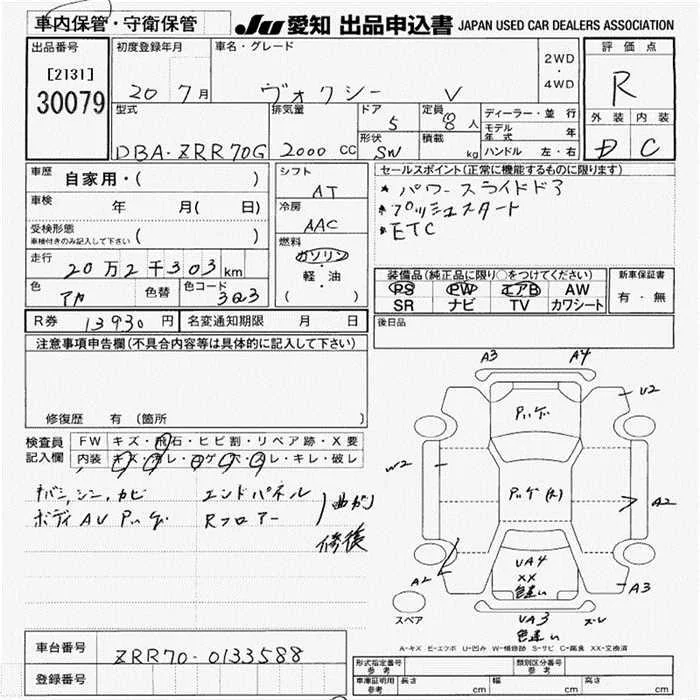 車内保管・守衛保管
JU 愛知 出品申込書 JAPAN USED CAR DEALERS ASSOCIATION
出品番号
[2131]
30079
初度登録年月
20 7月
車名・グレード
ヴォクシー V
2WD
・
4WD
評価点
R
外装 内装
C
型式
DBA-ZRR70G
排気量
2000 CC
ドア
5
形状
SW
定員
8人
積載
kg
ディーラー・並行
モデル年式 年
ハンドル 左・右
車歴
自家用・( )
車検
年 月( 日)
受検形態
車検付きのみ記入して下さい ( )
走行
20万2千303km
色
アカ
色替
色コード
3Q3
シフト
AT
冷房
AAC
燃料
ガソリン
・
軽・油
( )
セールスポイント(正常に機能するものに限ります)
* パワースライドドア
* プッシュスタート
* ETC
装備品(純正品に限り○をつけてください)
PS PW エアB AW
SR ナビ TV カワシート
新車保証書
有・無
R券 13930円
名変通知期限 月 日
後日品
注意事項申告欄(不具合内容等は具体的に記入して下さい)
修復歴 有(箇所 )
検査員
記入欄
FW キズ・飛石・ヒビ割・リペア跡・X要
内装 キズ・汚レ・コゲ・穴・スレ・キレ・破レ
キバン,シン,カビ エンドパネル
ボディAU Pッゲ Rフロアー
曲がり
修復
A3 A4
U2
Pッゲ
W2
Pッゲ(R)
A2
A2
UA4
XX
色違い
A3
スペア
UA3
色違い
ズレ
A-キズ E-エクボ U-凹み W-補修跡 S-サビ C-腐食 XX-交換済
車台番号
ZRR70-0133588
登録番号
形式指定番号
参考
類別区分番号
参考
車庫証明用
参考
長さ cm
幅 cm
高さ cm